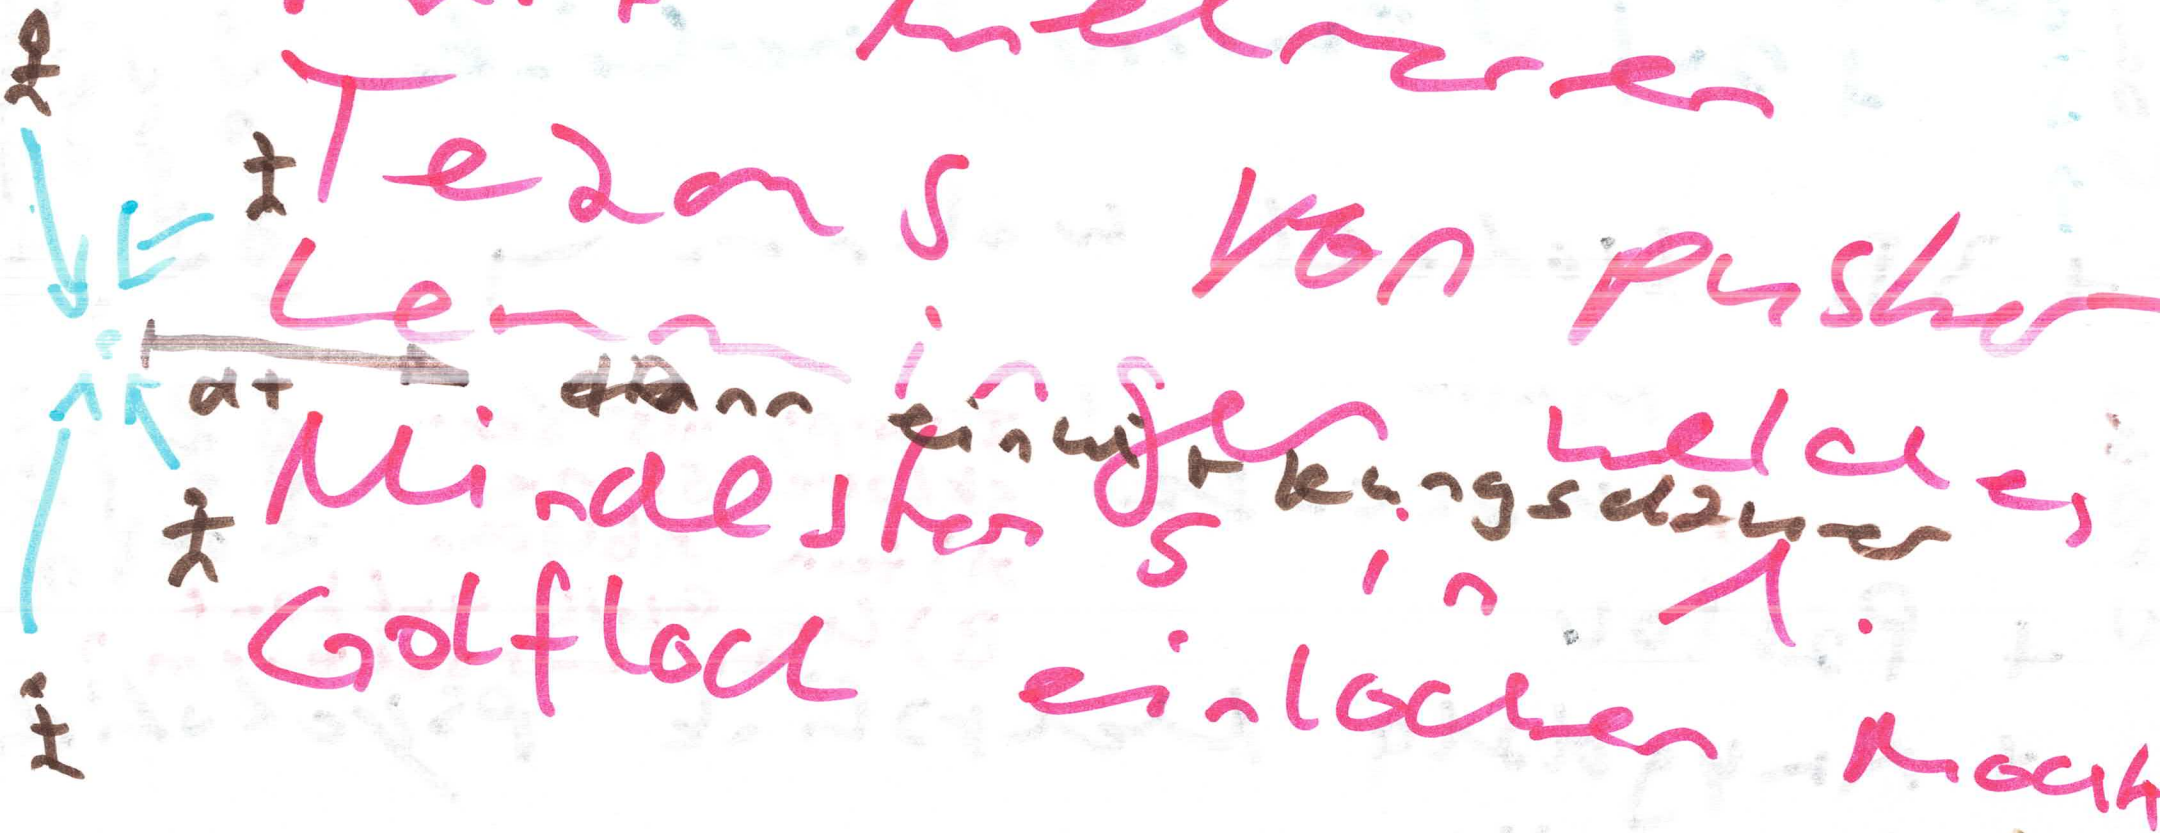 mehreren
Teams von pusher
Lemmingen welches
dt dann einwirkungsdauer
Mindestens in 1.
Golfloch einlochen
E